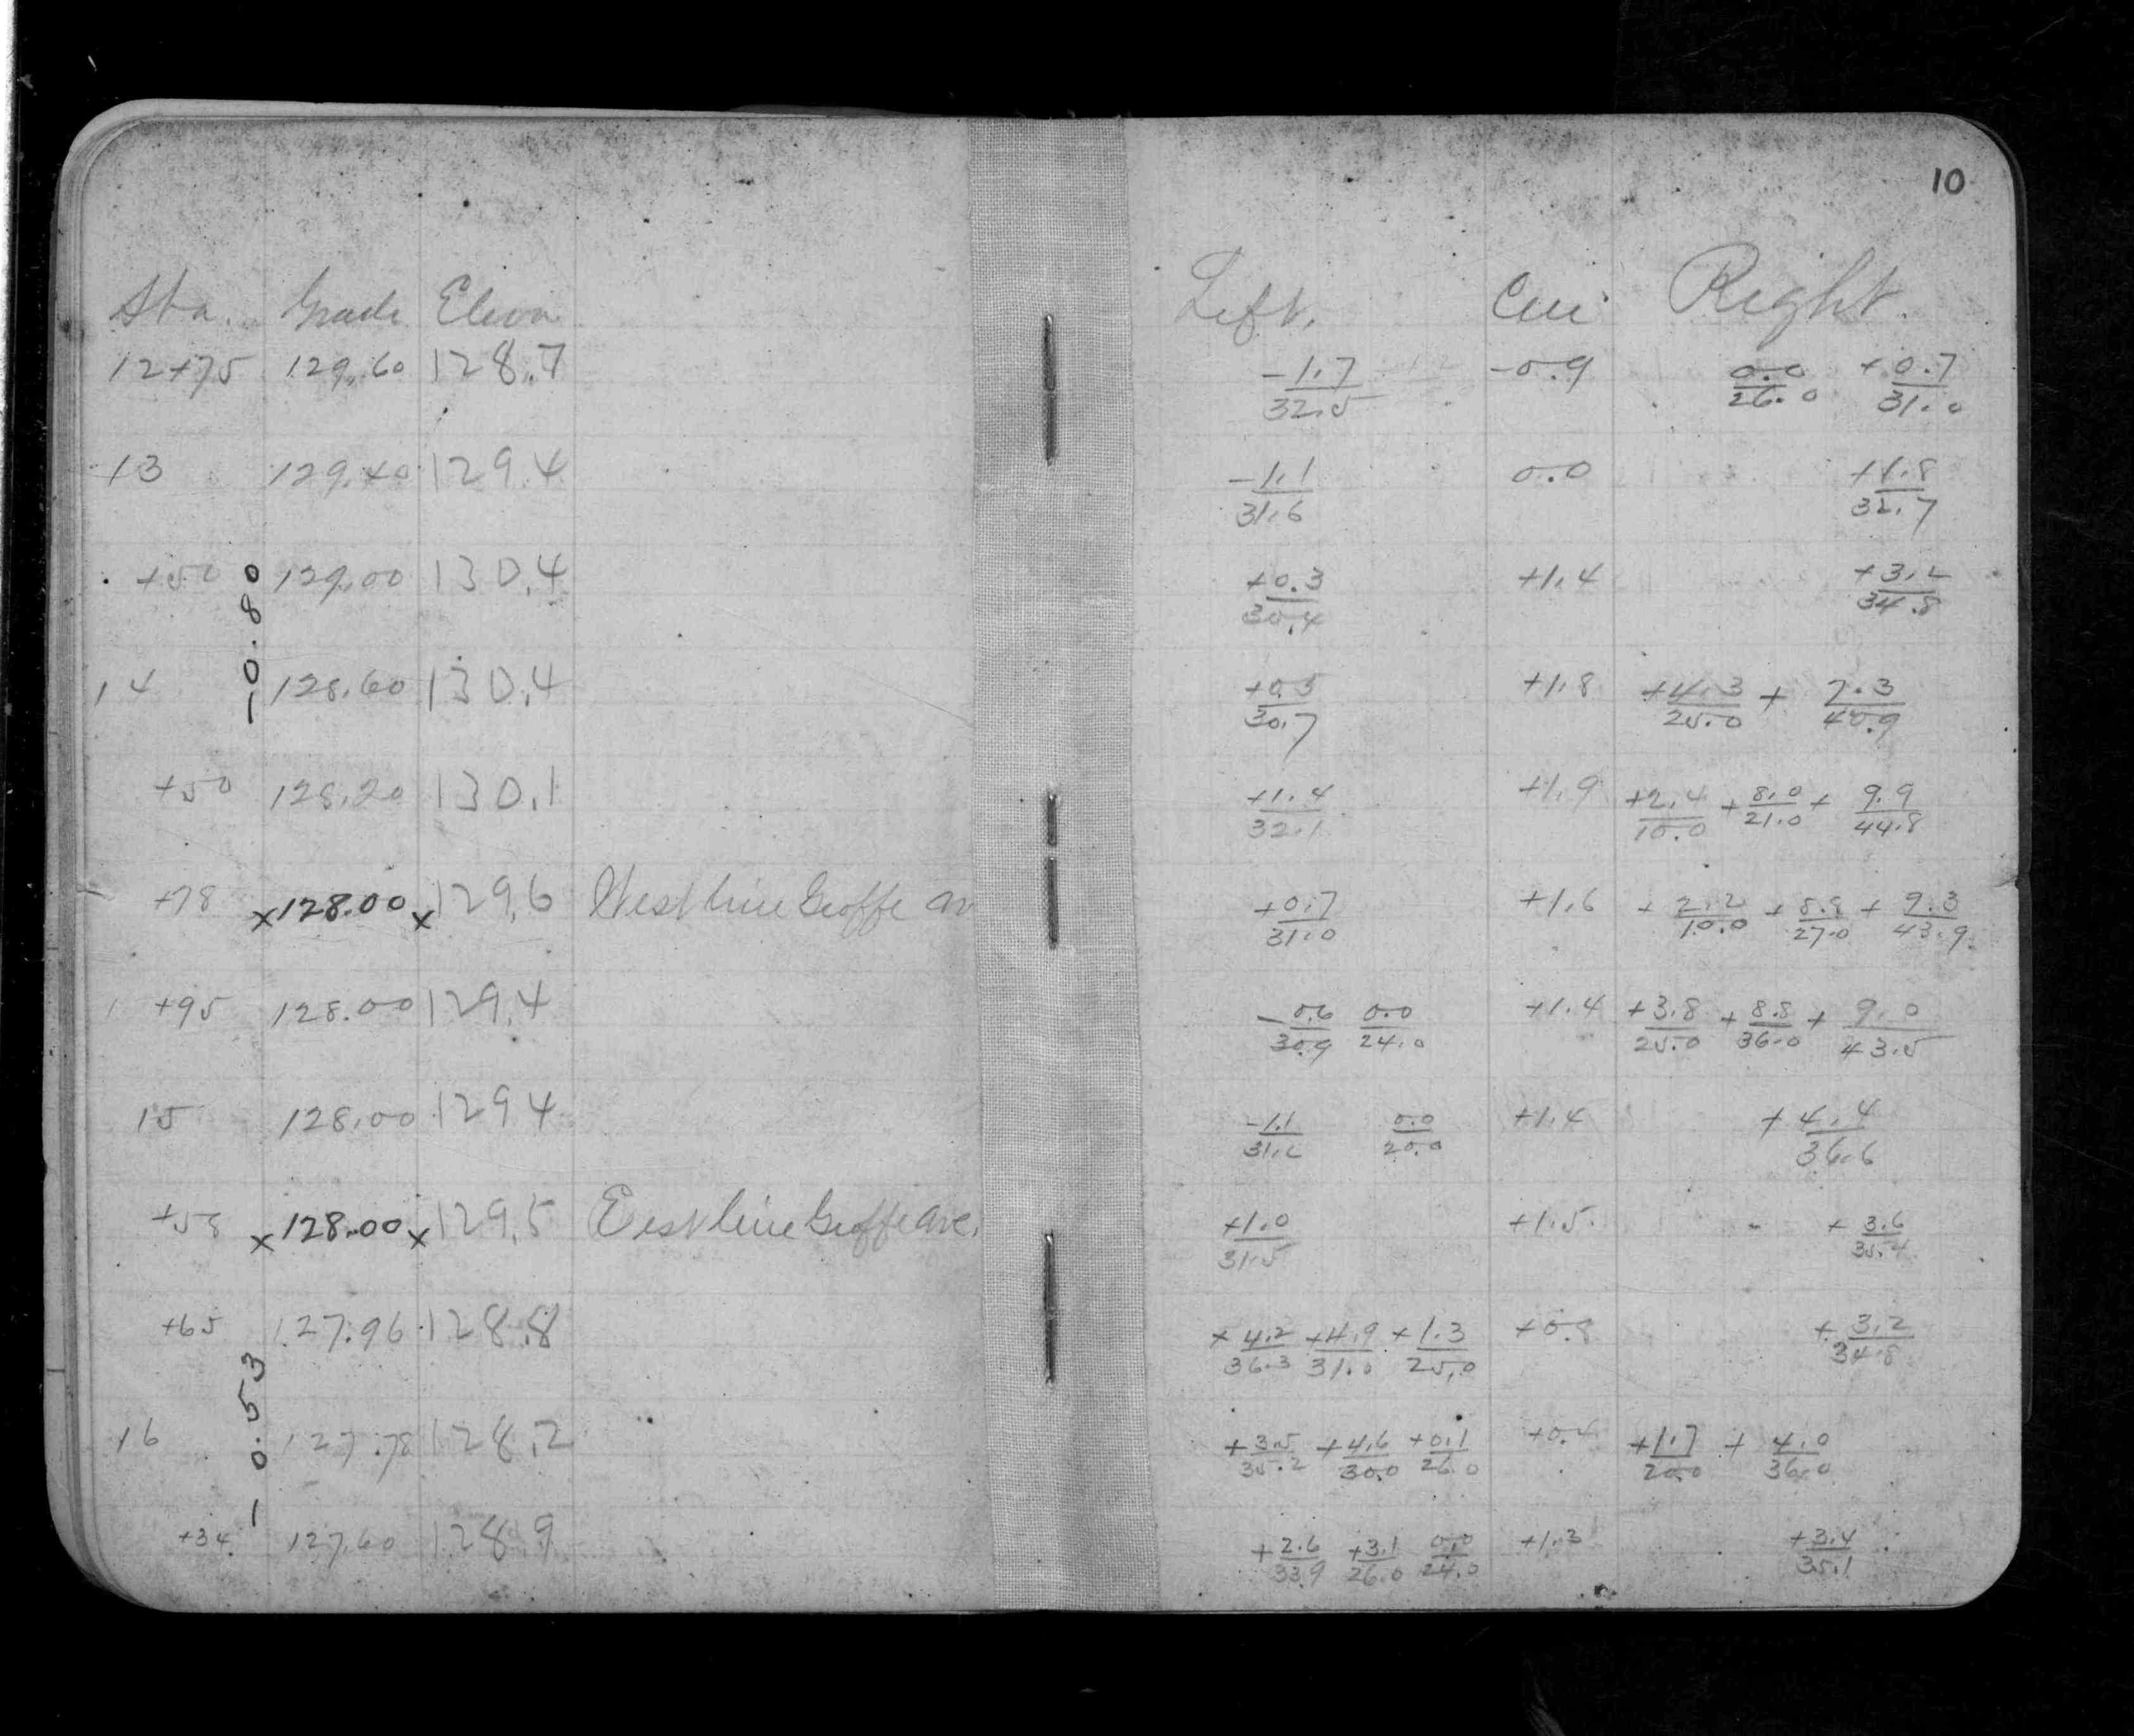 10
Sta. Grade Elevn Left. Cen Right.
12+75 129.60 128.7 -1.7/32.5 -0.9 0.0/26.0 +0.7/31.0
13 129.40 129.4 -1.1/31.6 0.0 +1.8/32.7
+50 129.00 130.4 +0.3/30.4 +1.4 +3.2/34.8
-0.80
14 128.60 130.4 +0.5/30.7 +1.8 +4.3/25.0 + 7.3/40.9
+50 128.20 130.1 +1.4/32.1 +1.9 +2.4/10.0 + 8.0/21.0 + 9.9/44.8
+78 x 128.00 x 129.6 West line Goffe av +0.7/31.0 +1.6 + 2.2/10.0 + 8.8/27.0 + 9.3/43.9
+95 128.00 129.4 - 0.6/30.9 0.0/24.0 +1.4 +3.8/25.0 + 8.8/36.0 + 9.0/43.5
15 128.00 129.4 -1.1/31.6 0.0/20.0 +1.4 + 4.4/36.6
+58 x 128.00 x 129.5 East line Goffe ave. +1.0/31.5 +1.5 + 3.6/35.4
+65 127.96 128.8 + 4.2/36.3 +4.9/31.0 +1.3/25.0 +0.8 + 3.2/34.8
-0.53
16 127.78 128.2 + 3.5/35.2 +4.6/30.0 +0.1/26.0 +0.4 +1.7/20.0 + 4.0/36.0
+34 127.60 128.9 + 2.6/33.9 +3.1/26.0 0.0/24.0 +1.3 +3.4/35.1